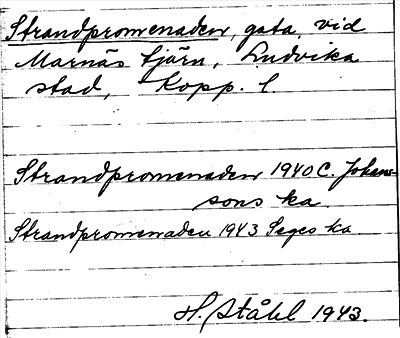 Strandpromenaden, gata, vid
Marnäs tjärn, Ludvika
stad, Kopp. l.
Strandpromenaden 1940 C. Johans-
sons ka
Strandpromenaden 1943 Seges ka
H. Ståhl 1943.